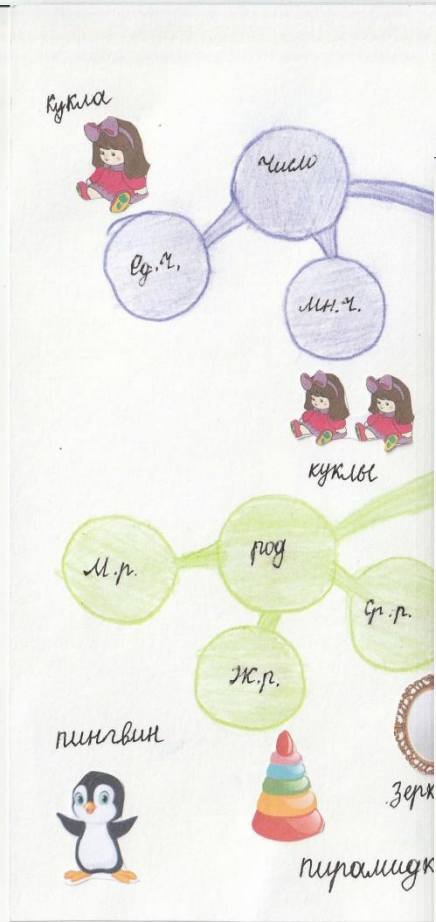 кукла
число
Ед.ч.
мн.ч.
куклы
род
М.р.
Ср.р.
Ж.р.
пингвин
зерк
пирамидк